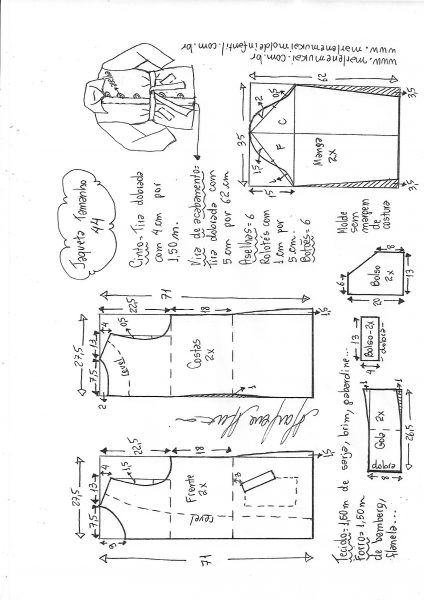 www.marlenemukai.com.br
www.marlenemukaimoldeinfantil.com.br
Jaqueta Tamanho
44
Cinto=Tira dobrada
com 4cm por
1,50m.
Vira de acabamento=
Tira dobrada com
5cm por 62cm
Aselhas=6
Rolotês com
1cm por
5cm.
Botões=6
62
3,5
3,5
35
15
2
0,5
1,5
1
C
F
Manga
2x
Molde
sem
margem
de
costura
71
22,5
18
1,5
27,5
13
7,5
4
0,5
2
1
revel
Costas
2x
13
4
Bolso-2x
dobra
6
8
20
13
Bolso
2x
71
22,5
18
1,5
27,5
13
7,5
4
1,5
9
3
Frente
2x
revel
1
1
8
26,5
Gola
2x
dobra
Tecido=1,60m de sarja, brim, gabardine...
Forro=1,50m
de bamberg,
flanela...